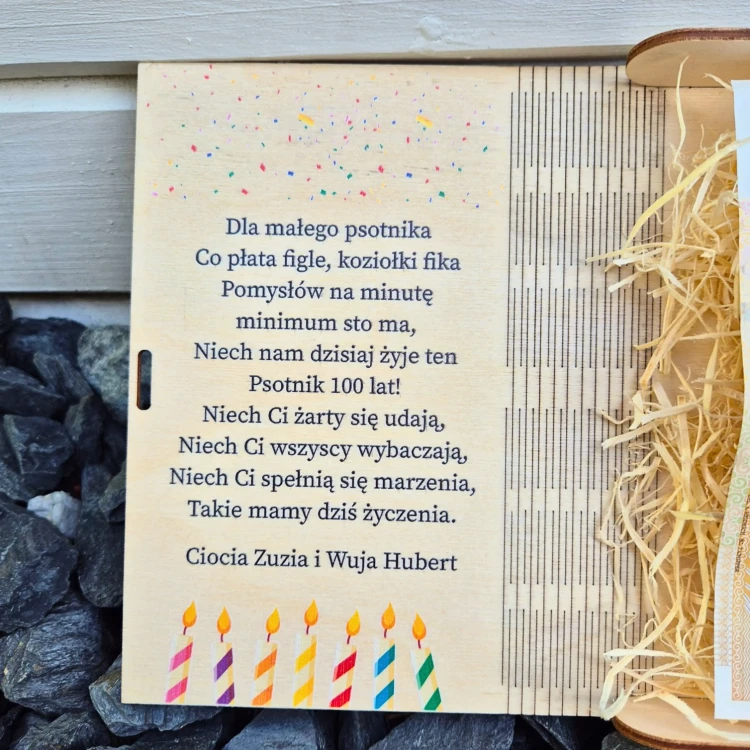 Dla małego psotnika
Co płata figle, koziołki fika
Pomysłów na minutę
minimum sto ma,
Niech nam dzisiaj żyje ten
Psotnik 100 lat!
Niech Ci żarty się udają,
Niech Ci wszyscy wybaczają,
Niech Ci spełnią się marzenia,
Takie mamy dziś życzenia.
Ciocia Zuzia i Wuja Hubert